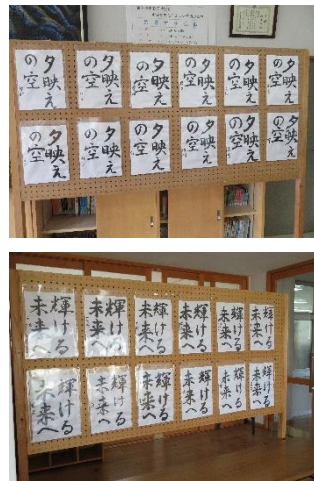 夕映え
の空
夕映え
の空
夕映え
の空
夕映え
の空
夕映え
の空
夕映え
の空
夕映え
の空
夕映え
の空
夕映え
の空
夕映え
の空
夕映え
の空
夕映え
の空
輝ける
未来へ
輝ける
未来へ
輝ける
未来へ
輝ける
未来へ
輝ける
未来へ
輝ける
未来へ
輝ける
未来へ
輝ける
未来へ
輝ける
未来へ
輝ける
未来へ
輝ける
未来へ
輝ける
未来へ